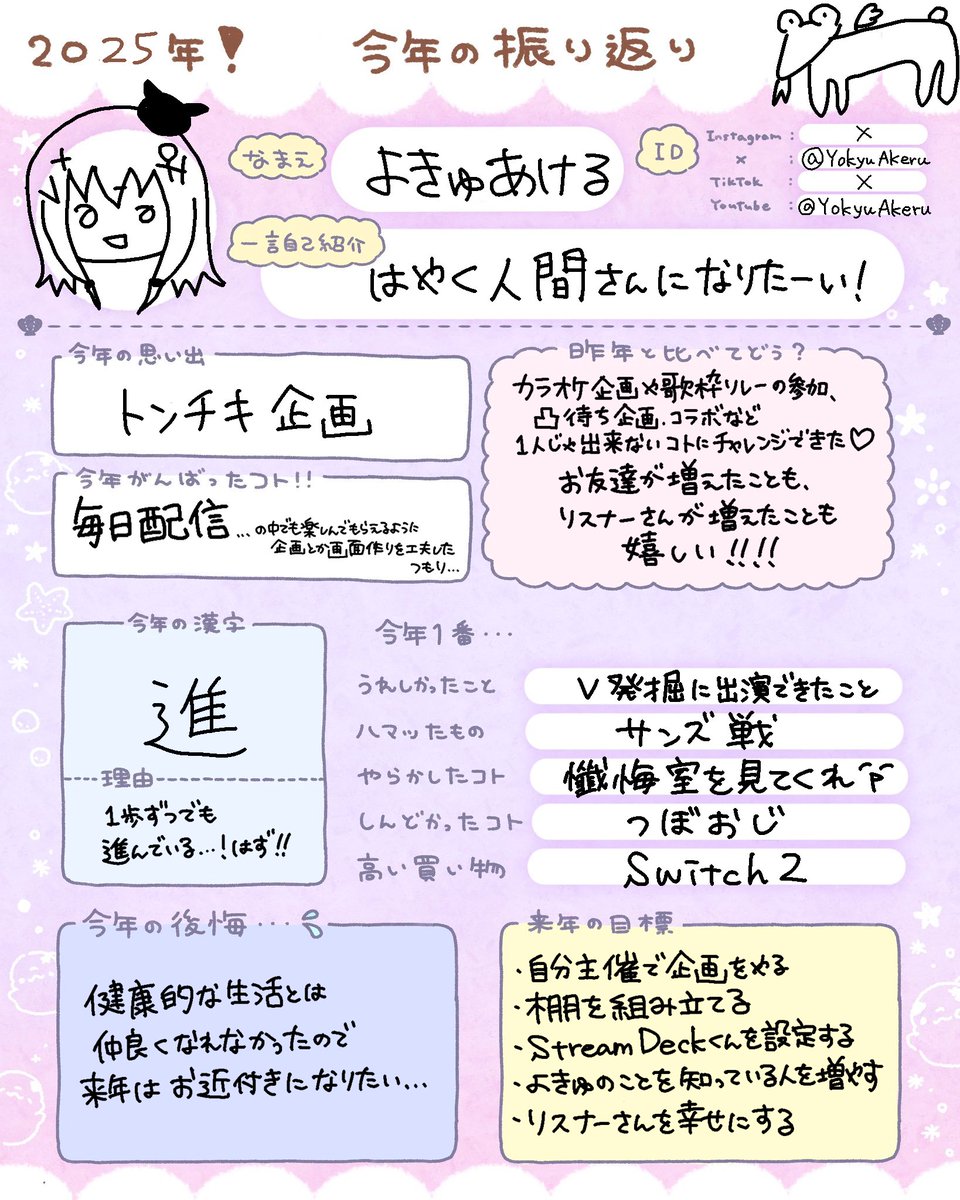 2025年! 今年の振り返り
なまえ
よきゅあける
ID
Instagram : ×
× : @YokyuAkeru
TikTok : ×
Youtube : @YokyuAkeru
一言自己紹介
はやく人間さんになりたーい!
今年の思い出
トンチキ企画
昨年と比べてどう?
カラオケ企画や歌枠リレーの参加、
凸待ち企画.コラボなど
1人じゃ出来ないコトにチャレンジできた♡
お友達が増えたことも、
リスナーさんが増えたことも
嬉しい!!!!
今年がんばったコト!!
毎日配信...の中でも楽しんでもらえるように
企画とか画面作りを工夫した
つもり...
今年の漢字
進
理由
1歩ずつでも
進んでいる...!はず!!
今年1番...
うれしかったこと V発掘に出演できたこと
ハマッたもの サンズ戦
やらかしたコト 懺悔室を見てくれ
しんどかったコト つぼおじ
高い買い物 Switch2
今年の後悔...
健康的な生活とは
仲良くなれなかったので
来年はお近付きになりたい...
来年の目標
・自分主催で企画をやる
・棚を組み立てる
・StreamDeckくんを設定する
・よきゅのことを知っている人を増やす
・リスナーさんを幸せにする